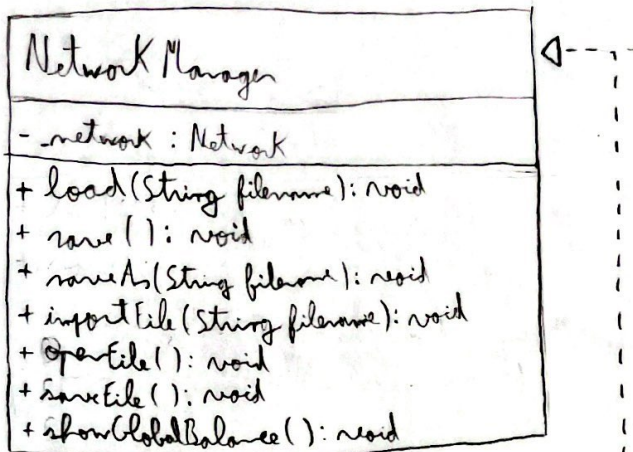 Network Manager
- _network : Network
+ load(String filename): void
+ save(): void
+ saveAs(String filename): void
+ importFile(String filename): void
+ openFile(): void
+ saveFile(): void
+ showGlobalBalance(): void